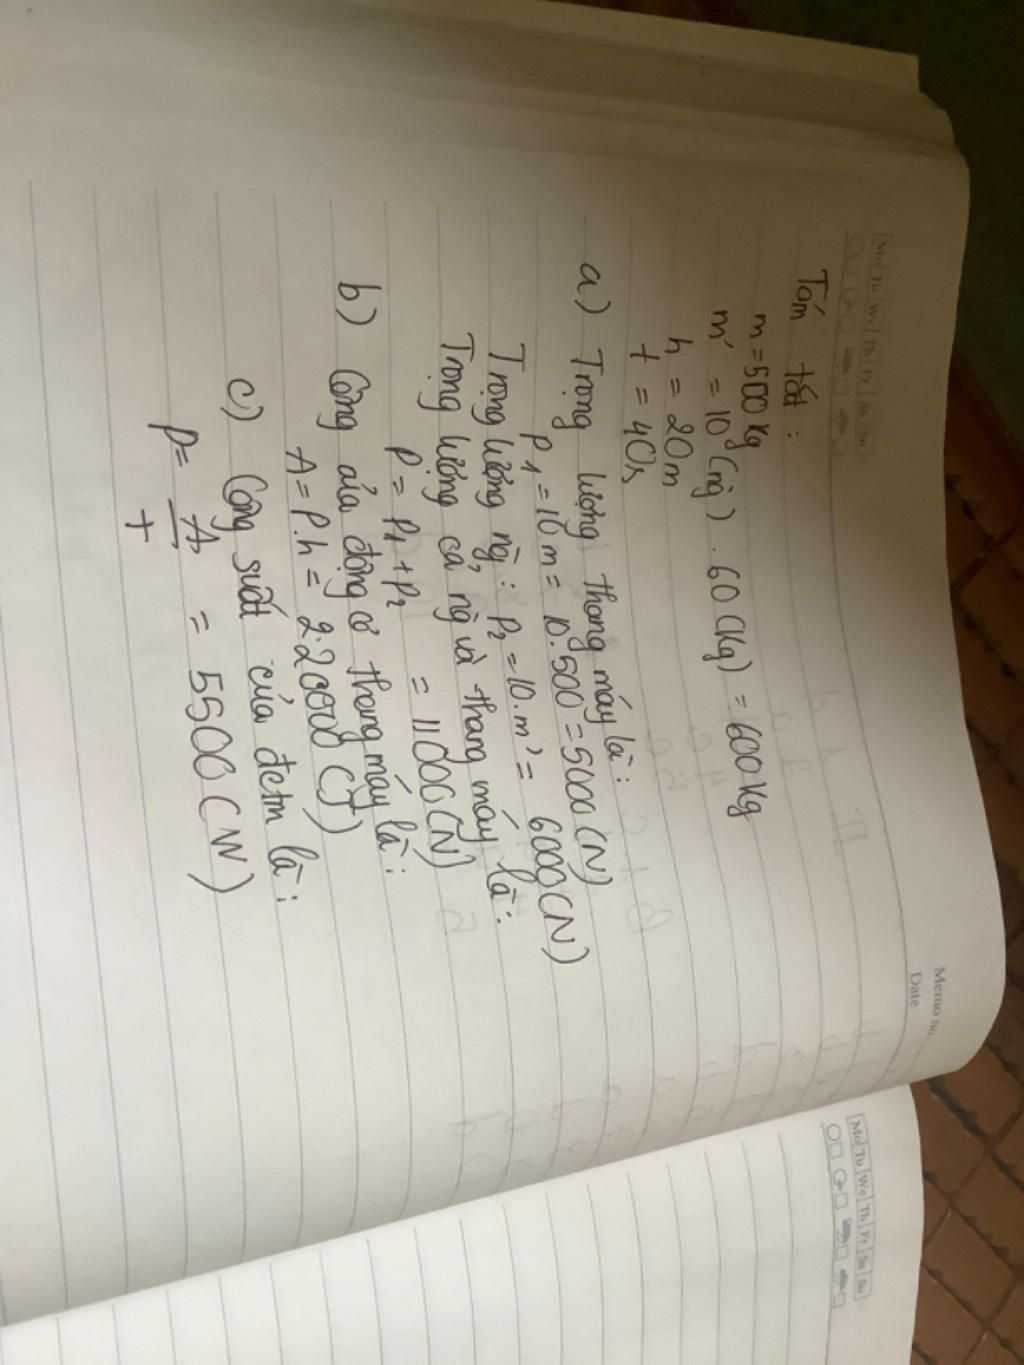 Memo no.
Date
Mo Tu We Th Fr Sa Su
Tóm tắt :
m = 500 kg
m' = 10 (ng) . 60 (kg) = 600 kg
h = 20 m
t = 40s
a) Trọng lượng thang máy là :
P1 = 10 m = 10.500 = 5000 (N)
Trọng lượng ng : P2 = 10.m' = 6000 (N)
Trọng lượng cả ng và thang máy là :
P = P1 + P2 = 11000 (N)
b) Công của động cơ thang máy là :
A = P.h = 220000 (J)
c) Công suất của là :
P = A = 5500 (W)
t
Mo Tu We Th Fr Sa Su